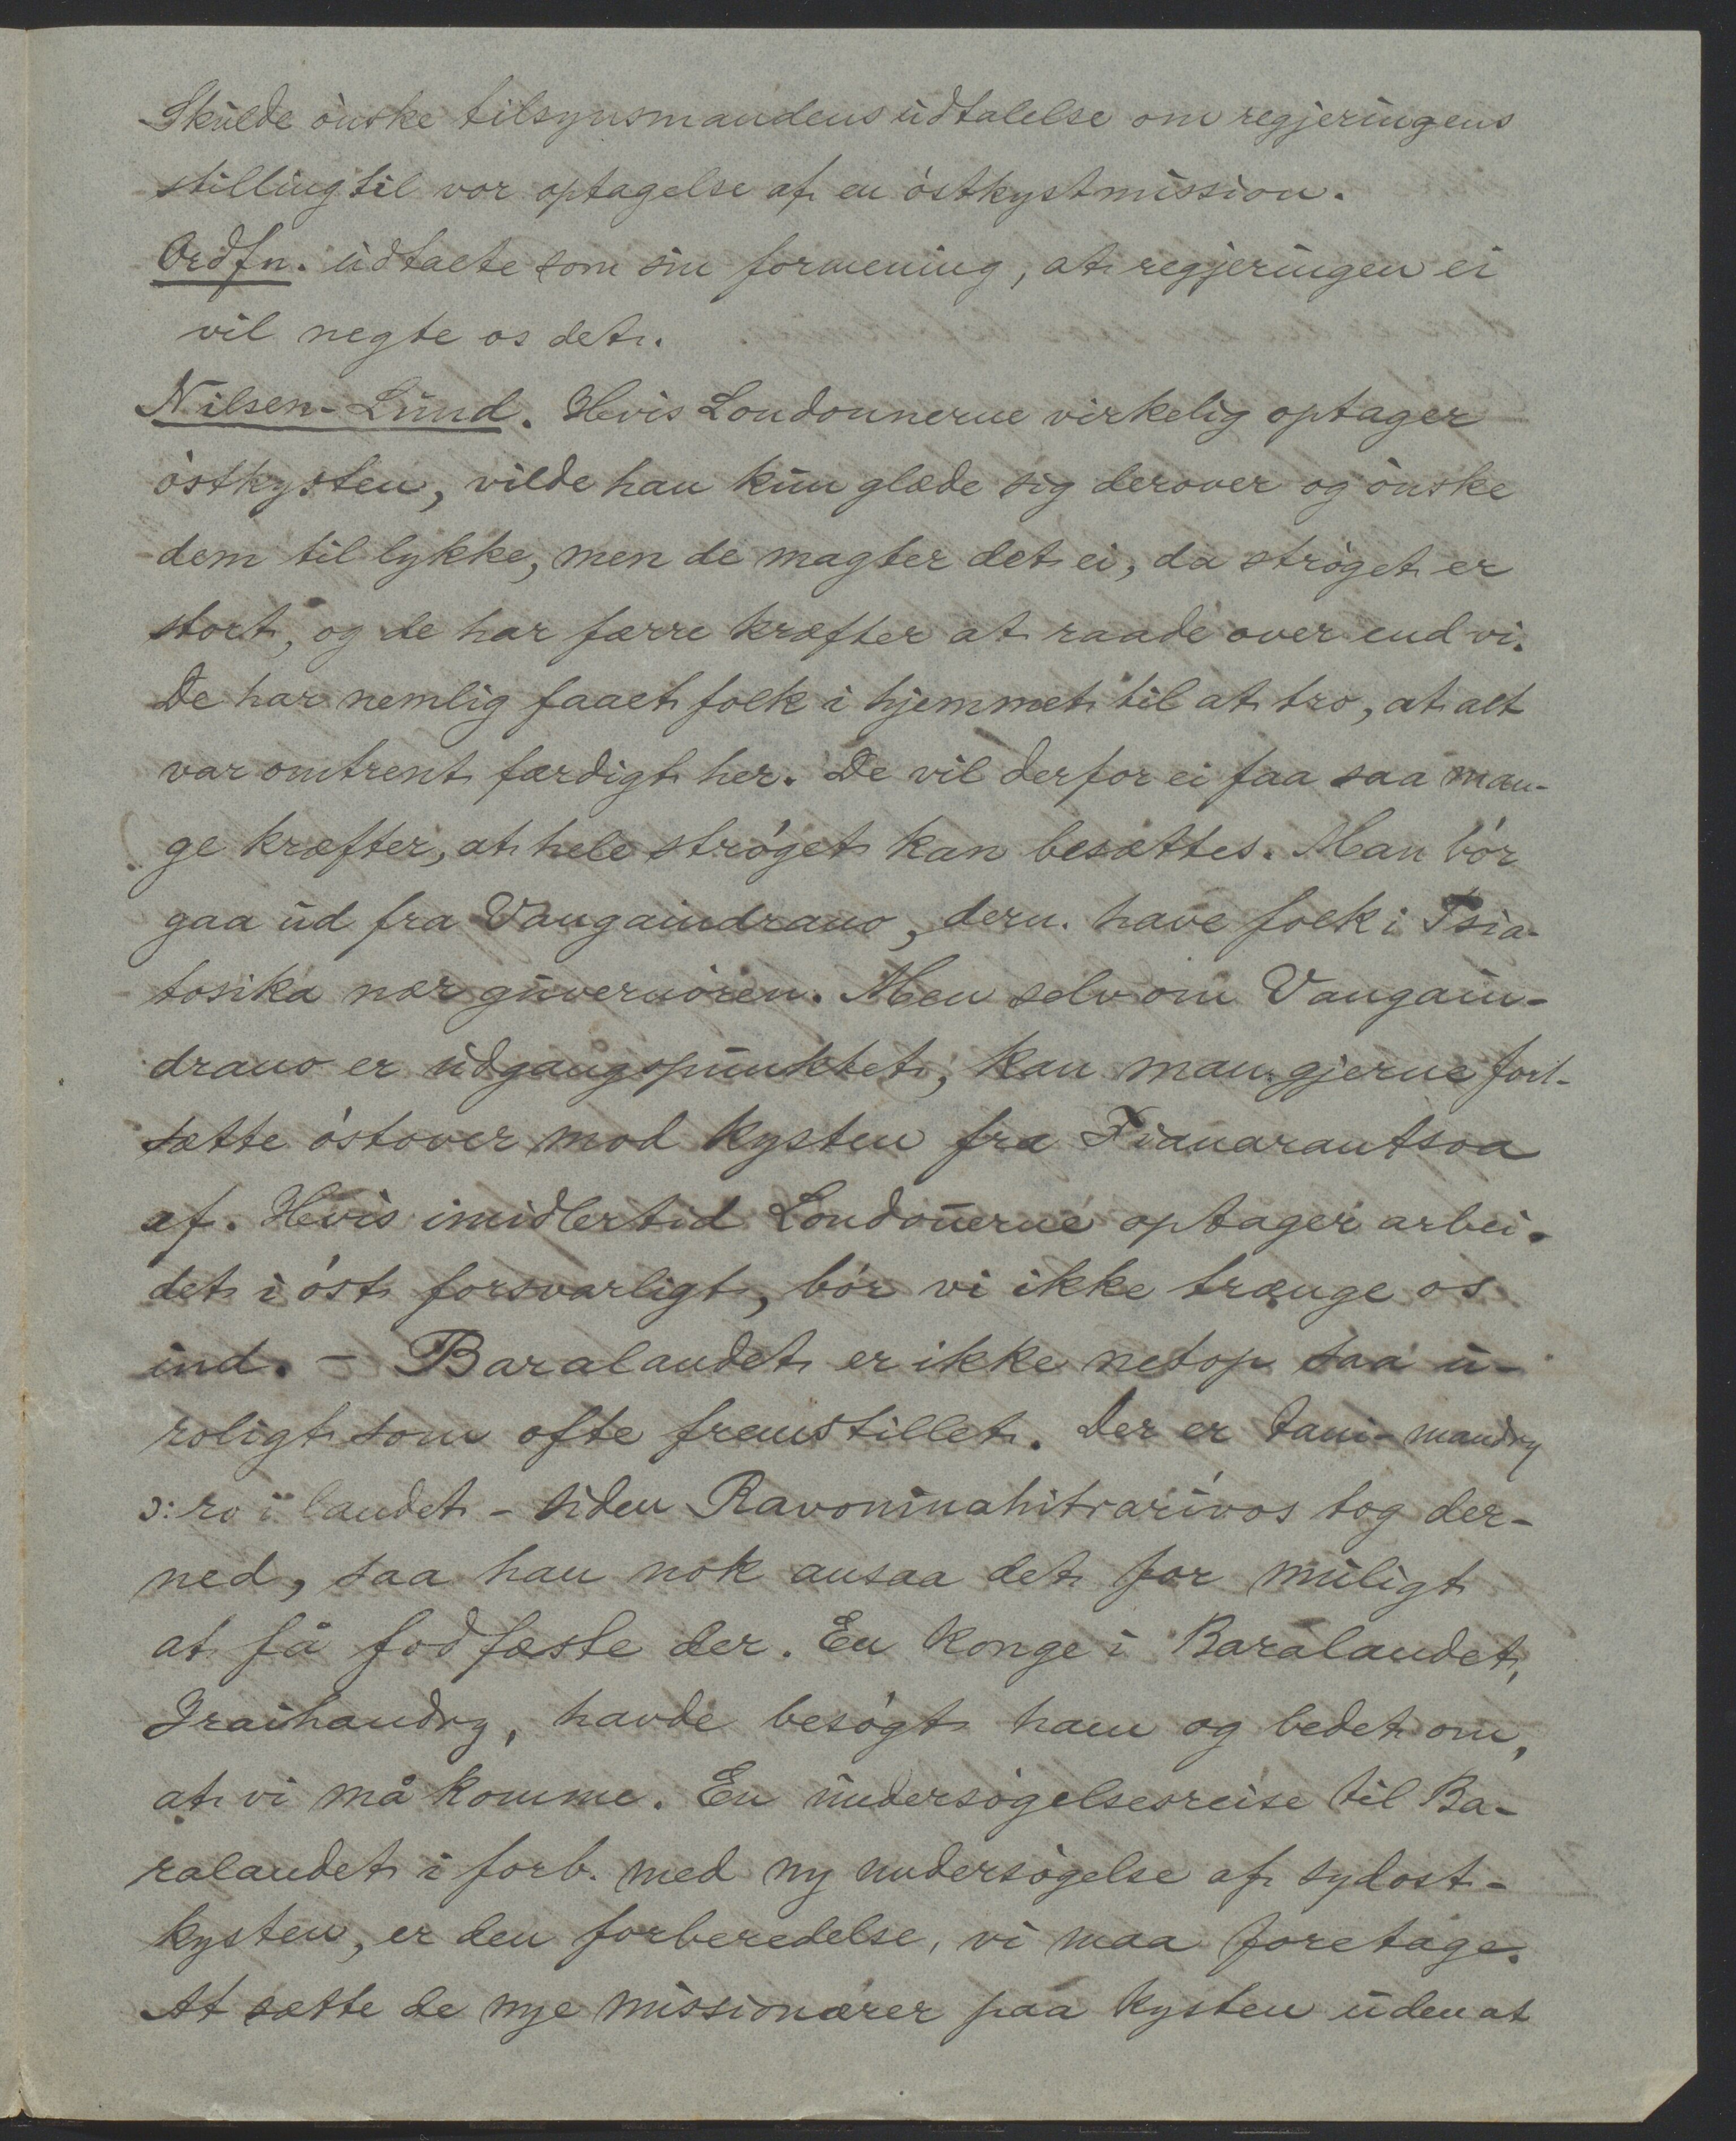 Skulde ønske tilsynsmandens udtalelse om regjeringens
stilling til vor optagelse af en østkystmission.
Ordfn. udtalte som sin formening, at regjeringen ei
vil negte os det.
Nilsen-Lund. Hvis Londonnerne virkelig optager
østkysten, vilde han kun glæde sig derover og ønske
dem til lykke, men de magter det ei, da strøget er
stort, og de har færre kræfter at raade over end vi.
De har nemlig faaet folk i hjemmet til at tro, at alt
var omtrent færdigt her. De vil derfor ei faa saa man-
ge kræfter, at hele strøget kan besættes. Man bør
gaa ud fra Vangaindrano, dern. have folk i Tsia-
tosika nær guvernøren. Men selv om Vangain-
drano er udgangspunktet, kan man gjerne fort-
sætte østover mod kysten fra Fianarantsoa
af. Hvis imidlertid Londonerne optager arbei-
det i øst forsvarligt, bør vi ikke trænge os
ind. - Baralandet er ikke netop saa u-
roligt som ofte fremstillet. Der er tani-mandry
ɔ: ro i landet - siden Ravoninahitrarivos tog der-
ned, saa han nok ansaa det for muligt
at få fodfæste der. En konge i Baralandet,
Iraihandry, havde besøgt ham og bedet om,
at vi må komme. En undersøgelsesreise til Ba-
ralandet i forb. med ny undersøgelse af sydost-
kysten, er den forberedelse, vi maa foretage.
At sætte de nye missionærer paa kysten uden at